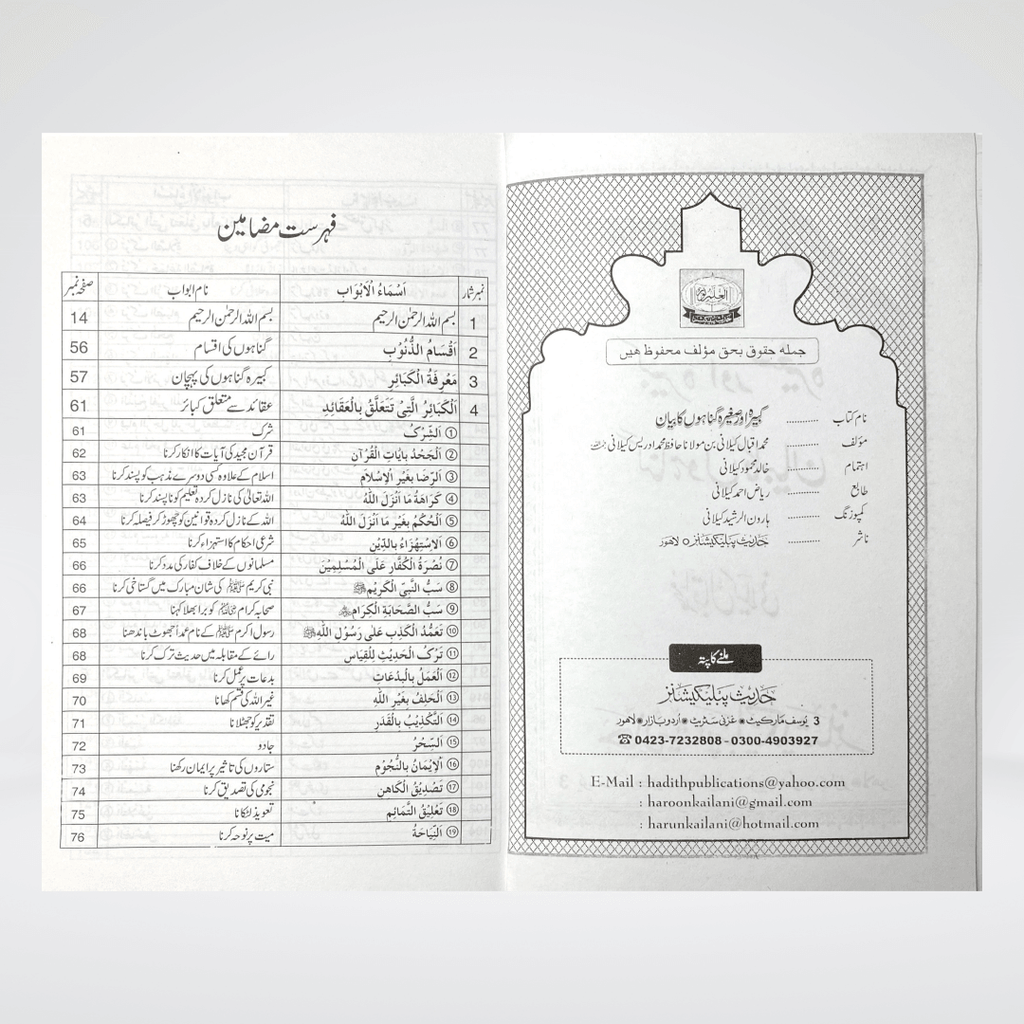 العلم نور
جمله حقوق بحق مؤلف محفوظ هیں
نام کتاب .......... کبیرہ اور صغیرہ گناہوں کا بیان
مؤلف .......... محمد اقبال کیلانی بن مولانا حافظ محمد ادریس کیلانی
اہتمام .......... خالد محمود کیلانی
طابع .......... ریاض احمد کیلانی
کمپوزنگ .......... ہارون الرشید کیلانی
ناشر .......... حدیث پبلیکیشنز لاہور
ملنے کا پتہ
حدیث پبلیکیشنز
3 یوسف مارکیٹ • غزنی سٹریٹ • اردو بازار • لاہور
☎ 0423-7232808 - 0300-4903927
E-Mail : hadithpublications@yahoo.com
: haroonkailani@gmail.com
: harunkailani@hotmail.com
فہرست مضامین
نمبر شمار اَسْمَاءُ الْاَبْوَابِ نام ابواب صفحہ نمبر
1 بسم اللہ الرحمٰن الرحیم بسم اللہ الرحمٰن الرحیم 14
2 اَقْسَامُ الذُّنُوْبِ گناہوں کی اقسام 56
3 مَعْرِفَةُ الْكَبَائِرِ کبیرہ گناہوں کی پہچان 57
4 اَلْكَبَائِرُ الَّتِیْ تَتَعَلَّقُ بِالْعَقَائِدِ عقائد سے متعلق کبائر 61
① اَلشِّرْكُ شرک 61
② اَلْجَحْدُ بِاٰيَاتِ الْقُرْآنِ قرآن مجید کی آیات کا انکار کرنا 62
③ اَلرِّضَا بِغَيْرِ الْاِسْلَامِ اسلام کے علاوہ کسی دوسرے مذہب کو پسند کرنا 63
④ كَرَاهَةُ مَا اَنْزَلَ اللّٰهُ اللہ تعالیٰ کی نازل کردہ تعلیم کو ناپسند کرنا 63
⑤ اَلْحُكْمُ بِغَيْرِ مَا اَنْزَلَ اللّٰهُ اللہ کے نازل کردہ قوانین کو چھوڑ کر فیصلہ کرنا 64
⑥ اَلْاِسْتِهْزَاءُ بِالدِّيْنِ شرعی احکام کا استہزاء کرنا 65
⑦ نُصْرَةُ الْكُفَّارِ عَلَى الْمُسْلِمِيْنَ مسلمانوں کے خلاف کفار کی مدد کرنا 66
⑧ سَبُّ النَّبِيِّ الْكَرِيْمِ ﷺ نبی کریم ﷺ کی شان مبارک میں گستاخی کرنا 66
⑨ سَبُّ الصَّحَابَةِ الْكِرَامِ صحابہ کرام کو برا بھلا کہنا 67
⑩ تَعَمُّدُ الْكَذِبِ عَلٰى رَسُوْلِ اللّٰهِ ﷺ رسول اکرم ﷺ کے نام عمداً جھوٹ باندھنا 68
⑪ تَرْكُ الْحَدِيْثِ لِلْقِيَاسِ رائے کے مقابلہ میں حدیث ترک کرنا 68
⑫ اَلْعَمَلُ بِالْبِدْعَاتِ بدعات پر عمل کرنا 69
⑬ اَلْحَلِفُ بِغَيْرِ اللّٰهِ غیر اللہ کی قسم کھانا 70
⑭ اَلتَّكْذِيْبُ بِالْقَدَرِ تقدیر کو جھٹلانا 71
⑮ اَلسِّحْرُ جادو 72
⑯ اَلْاِيْمَانُ بِالنُّجُوْمِ ستاروں کی تاثیر پر ایمان رکھنا 73
⑰ تَصْدِيْقُ الْكَاهِنِ نجومی کی تصدیق کرنا 74
⑱ تَعْلِيْقُ التَّمَائِمِ تعویذ لٹکانا 75
⑲ اَلنِّيَاحَةُ میت پر نوحہ کرنا 76